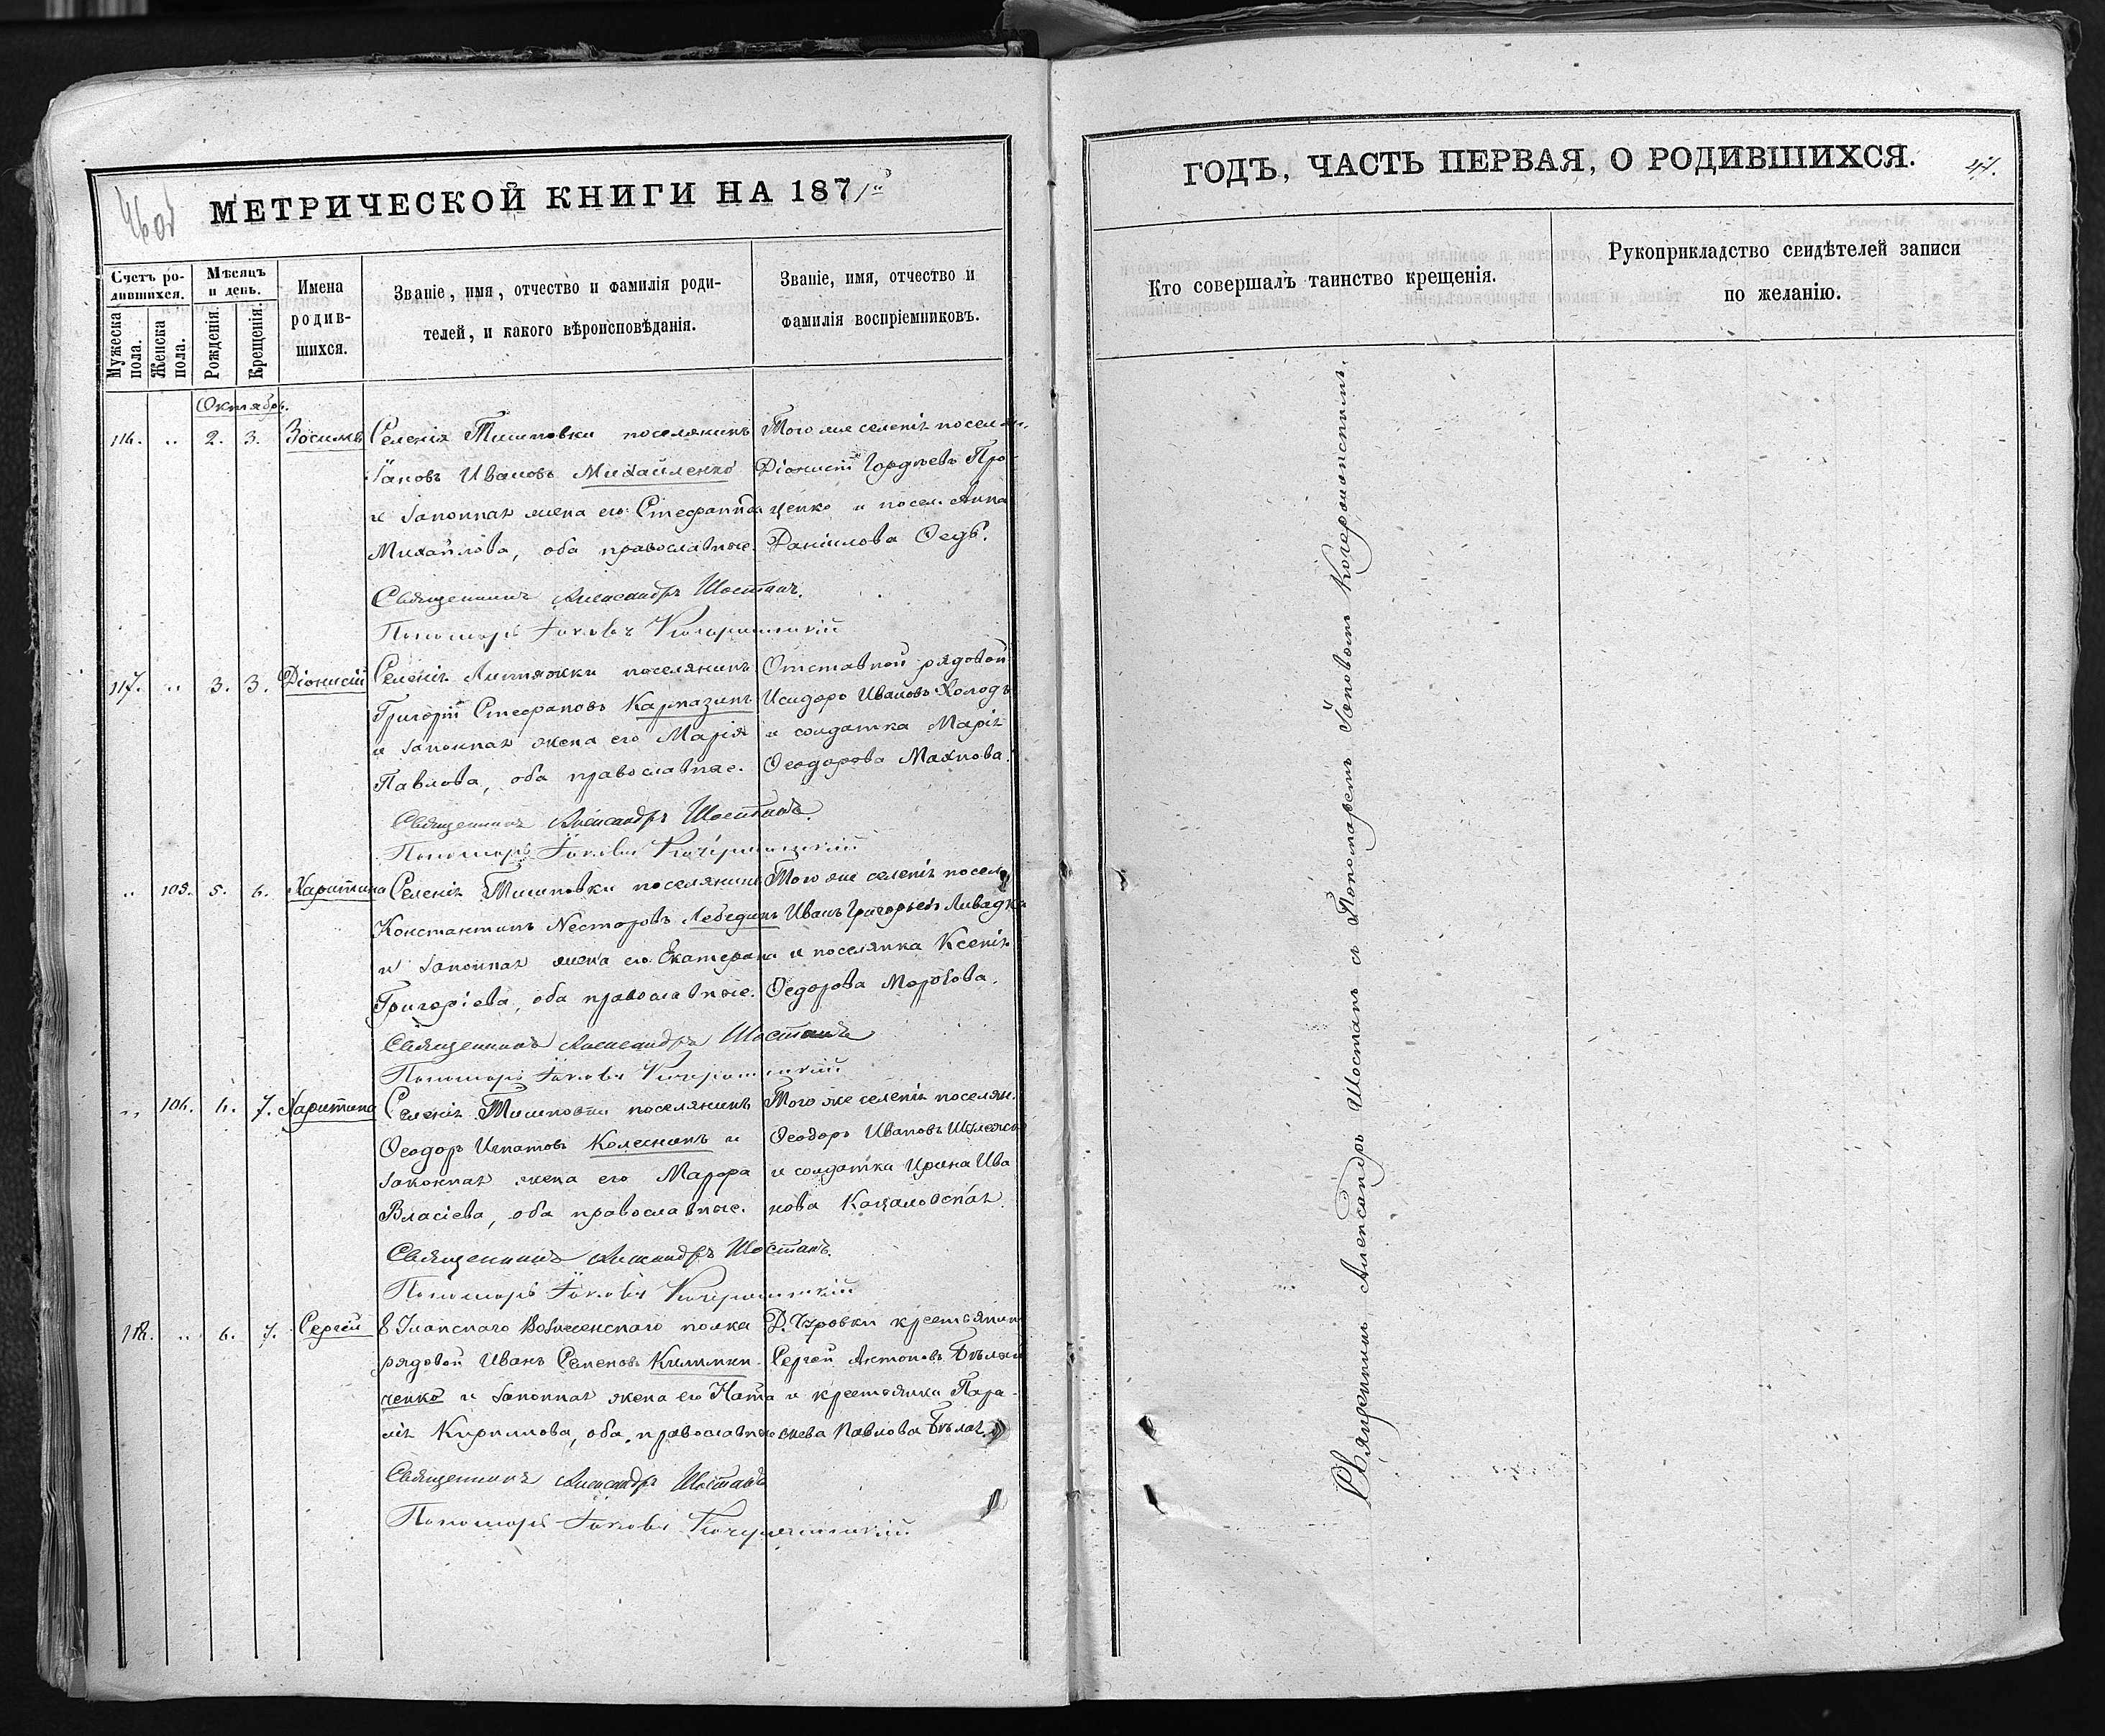 МЕТРИЧЕСКОЙ КНИГИ НА 1871й
Счетъ ро-
дившихся.
Мужеска
пола.
Женска
пола.
Мѣсяцъ
и день.
Рожденія.
Крещенія.
Имена
родив-
шихся.
Званіе, имя, отчество и фамилія роди-
телей, и какого вѣроисповѣданія.
Званіе, имя, отчество и
фамилія воспріемниковъ.
Октябрь.
116. „ 2. 3. Зосима Селенія Тишковки поселянинъ Того же селенія поселян.
Іаковъ Ивановъ Михайленко Діонисій Гордѣевъ Про-
и законная жена его Стефанида ценко и посел. Анна
Михайлова, оба православные. Даніилова
Священникъ Александръ Шостакъ.
Пономарь Іаковъ
117. „ 3. 3. Діонисій Селенія Липняжки поселянинъ Отставной рядовой
Григорій Стефановъ Кармазинъ Исидоръ Ивановъ Холодъ
и законная жена его Марія и солдатка Марія
Павлова, оба православные. Ѳеодорова Махнова.
Священникъ Александръ Шостакъ.
Пономарь Іаковъ
„ 105. 5. 6. Харитина Селенія Тишковки поселянинъ Того же селенія посел.
Константинъ Несторовъ Лебединъ Иванъ Григорьевъ
и законная жена его Екатерина и поселянка Ксенія
Григоріева, оба православные. Ѳедорова
Священникъ Александръ Шостакъ
Пономарь Іаковъ
„ 106. 6. 7. Харитина Селенія Тишковки поселянинъ Того же селенія поселян.
Ѳеодоръ Игнатовъ Колесникъ и Ѳеодоръ Ивановъ
законная жена его Марфа и солдатка Ирина Ива
Власіева, оба православные. нова
Священникъ Александръ Шостакъ.
Пономарь Іаковъ
118. „ 6. 7. Сергѣй 8 Уланскаго Вознесенскаго полка Д. крестьянинъ
рядовой Иванъ Семеновъ Климен- Сергѣй Антоновъ
ченко и законная жена его Ната и крестьянка Пара-
лія Кирилова, оба православные скева Павлова Бѣлая
Священникъ Александръ Шостакъ
Пономарь Іаковъ
ГОДЪ, ЧАСТЬ ПЕРВАЯ, О РОДИВШИХСЯ.
Кто совершалъ таинство крещенія.
Рукоприкладство свидѣтелей записи
по желанію.
Священникъ Александръ Шостакъ съ Пономаремъ Іаковомъ